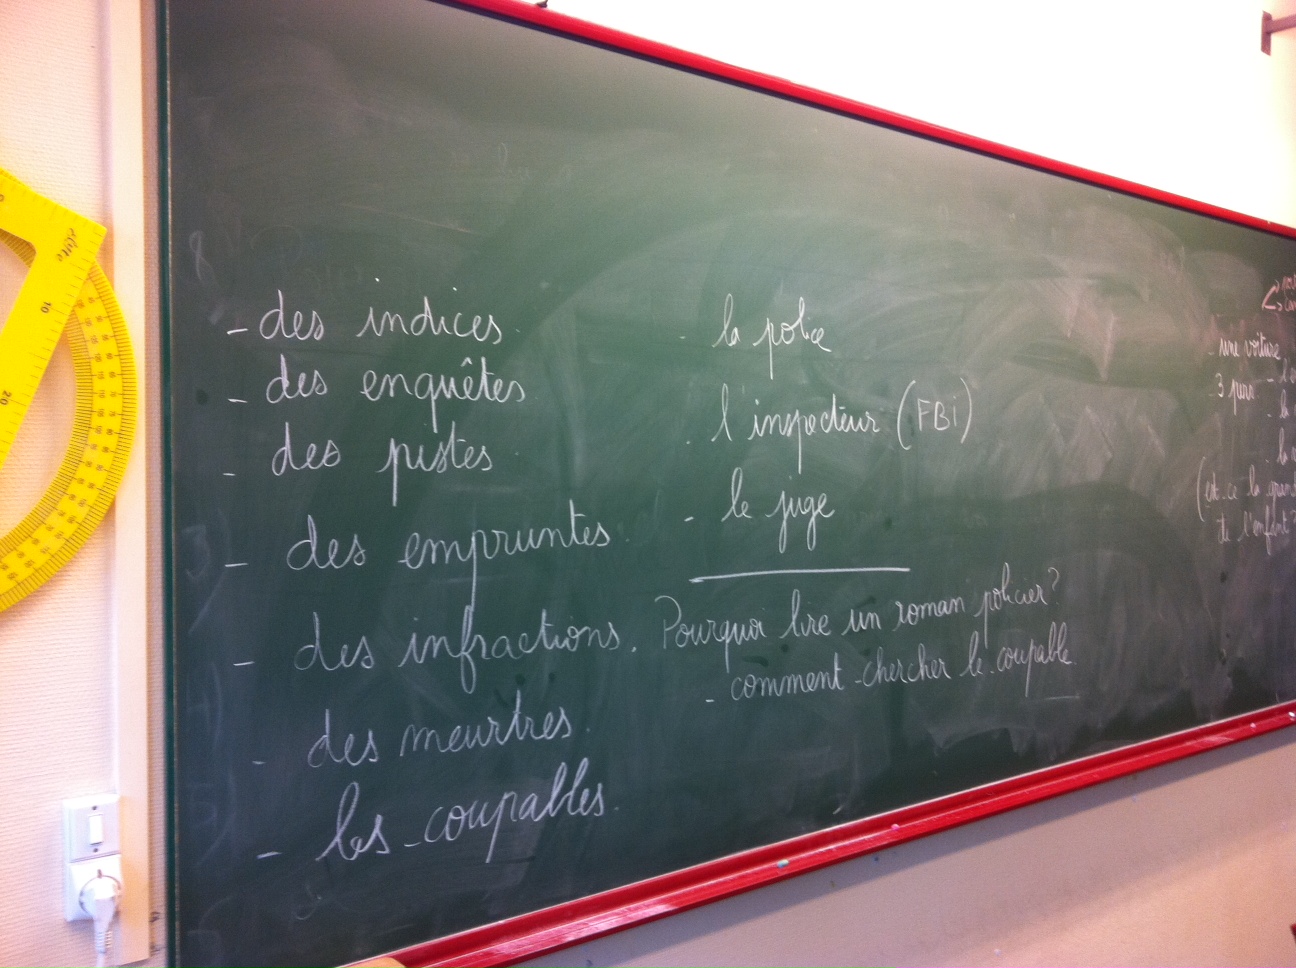 - des indices
- des enquêtes
- des pistes
- des empruntes.
- des infractions.
- des meurtres.
- les coupables.
- la police
- l'inspecteur (FBi)
- le juge
Pourquoi lire un roman policier?
- comment chercher le coupable.
- une voiture
3 pers.
(est-ce la
de l'enfant?
10
20